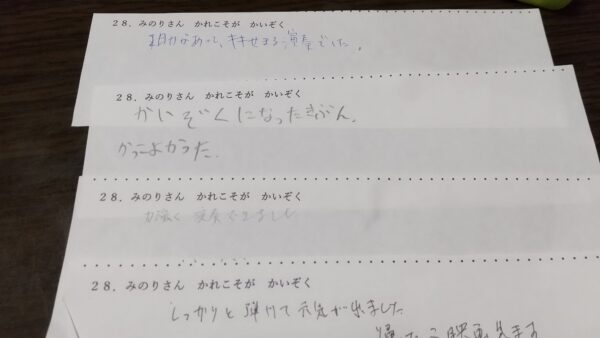 28．みのりさん　かれこそが　かいぞく
あって、キキせまる演奏でした。
28．みのりさん　かれこそが　かいぞく
かいぞくになったきぶん。
かっこよかった。
28．みのりさん　かれこそが　かいぞく
力強く 演奏できました
28．みのりさん　かれこそが　かいぞく
しっかりと弾けて元気が出ました